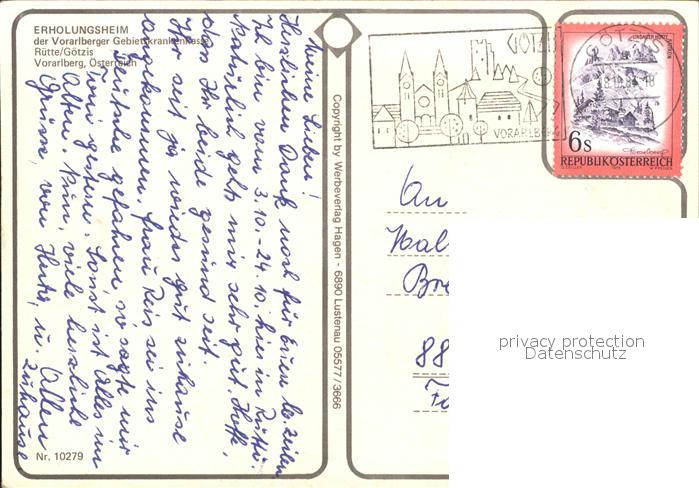 ERHOLUNGSHEIM
der Vorarlberger Gebietskrankenkasse
Rütte/Götzis
Vorarlberg, Österreich
Meine Lieben!
Herzlichen Dank noch für Euren lb. Zeilen
Ich bin vom 3.10.-24.10. hier in Rütte.
Natürlich geht mir sehr gut. Hoffe,
das Ihr beide gesund seit.
Ihr seit ja wieder gut zuhause
angekommen. Frau Reis sei ins
Deutsche gefahren, so sagte mir
Troni gestern. Sonst ist Alles im
Alten. Nun, viele herzliche
Grüsse, von u. Allen
zuhause
Nr. 10279
Copyright by Werbeverlag Hagen - 6890 Lustenau 05577/3666
GÖTZIS
VORARLBERG
GÖTZIS
6S
REPUBLIK ÖSTERREICH
An
88
privacy protection
Datenschutz